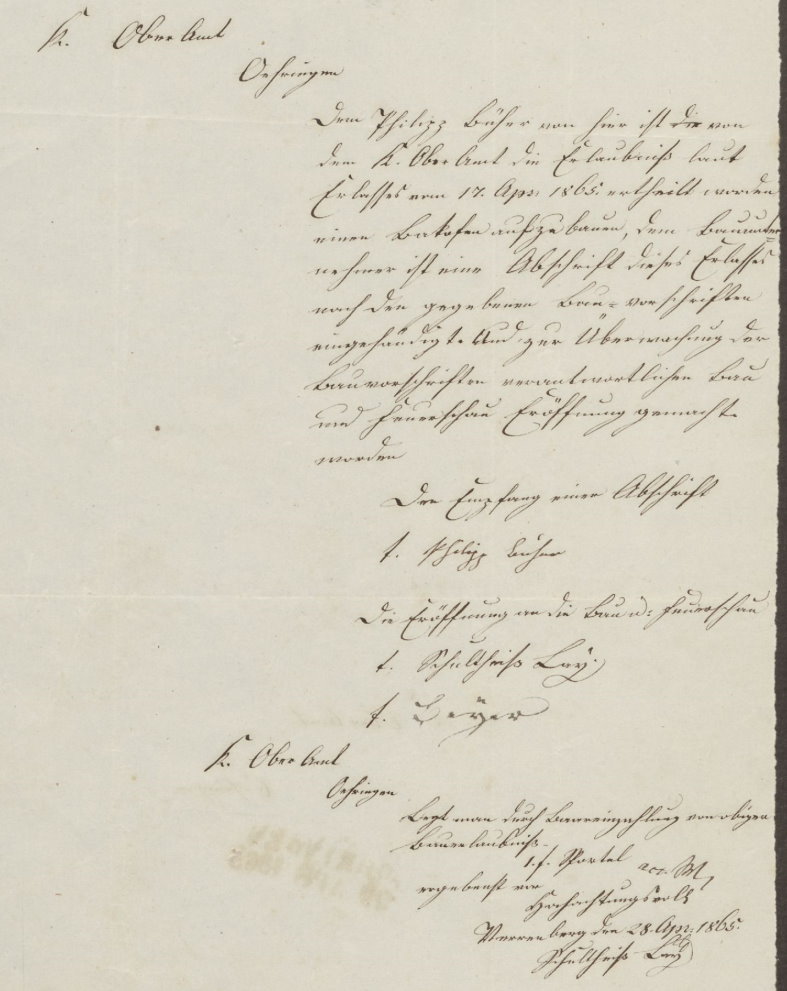 K. OberAmt
Oehringen
Dem Philipp Büher von hier ist die von
dem K. OberAmt die Erlaubniß laut
Erlasses vom 17. Apr. 1865 ertheilt worden
einen Bakofen aufzubauen, dem Bauunter
nehmer ist eine Abschrift dieses Erlasses
nach den gegebenen Bau-vorschriften
eingehändigt. Und zur Überwachung der
Bauvorschriften verantwortlichen Bau
und Feuerschau Eröffnung gemacht
worden
Den Empfang einer Abschrift
t. Philipp Büher
Die Eröffnung an die Bau u: Feuerschau
t. Schultheiß Lay.
t. Beyer
K. OberAmt
Oehringen
Legt man durch Baareinzahlung von obiger
Bauerlaubniß
1 f. Sportel
ergebenst vor
Hochachtungsvoll
Verrenberg den 28. Apr. 1865.
Schultheiß Lay